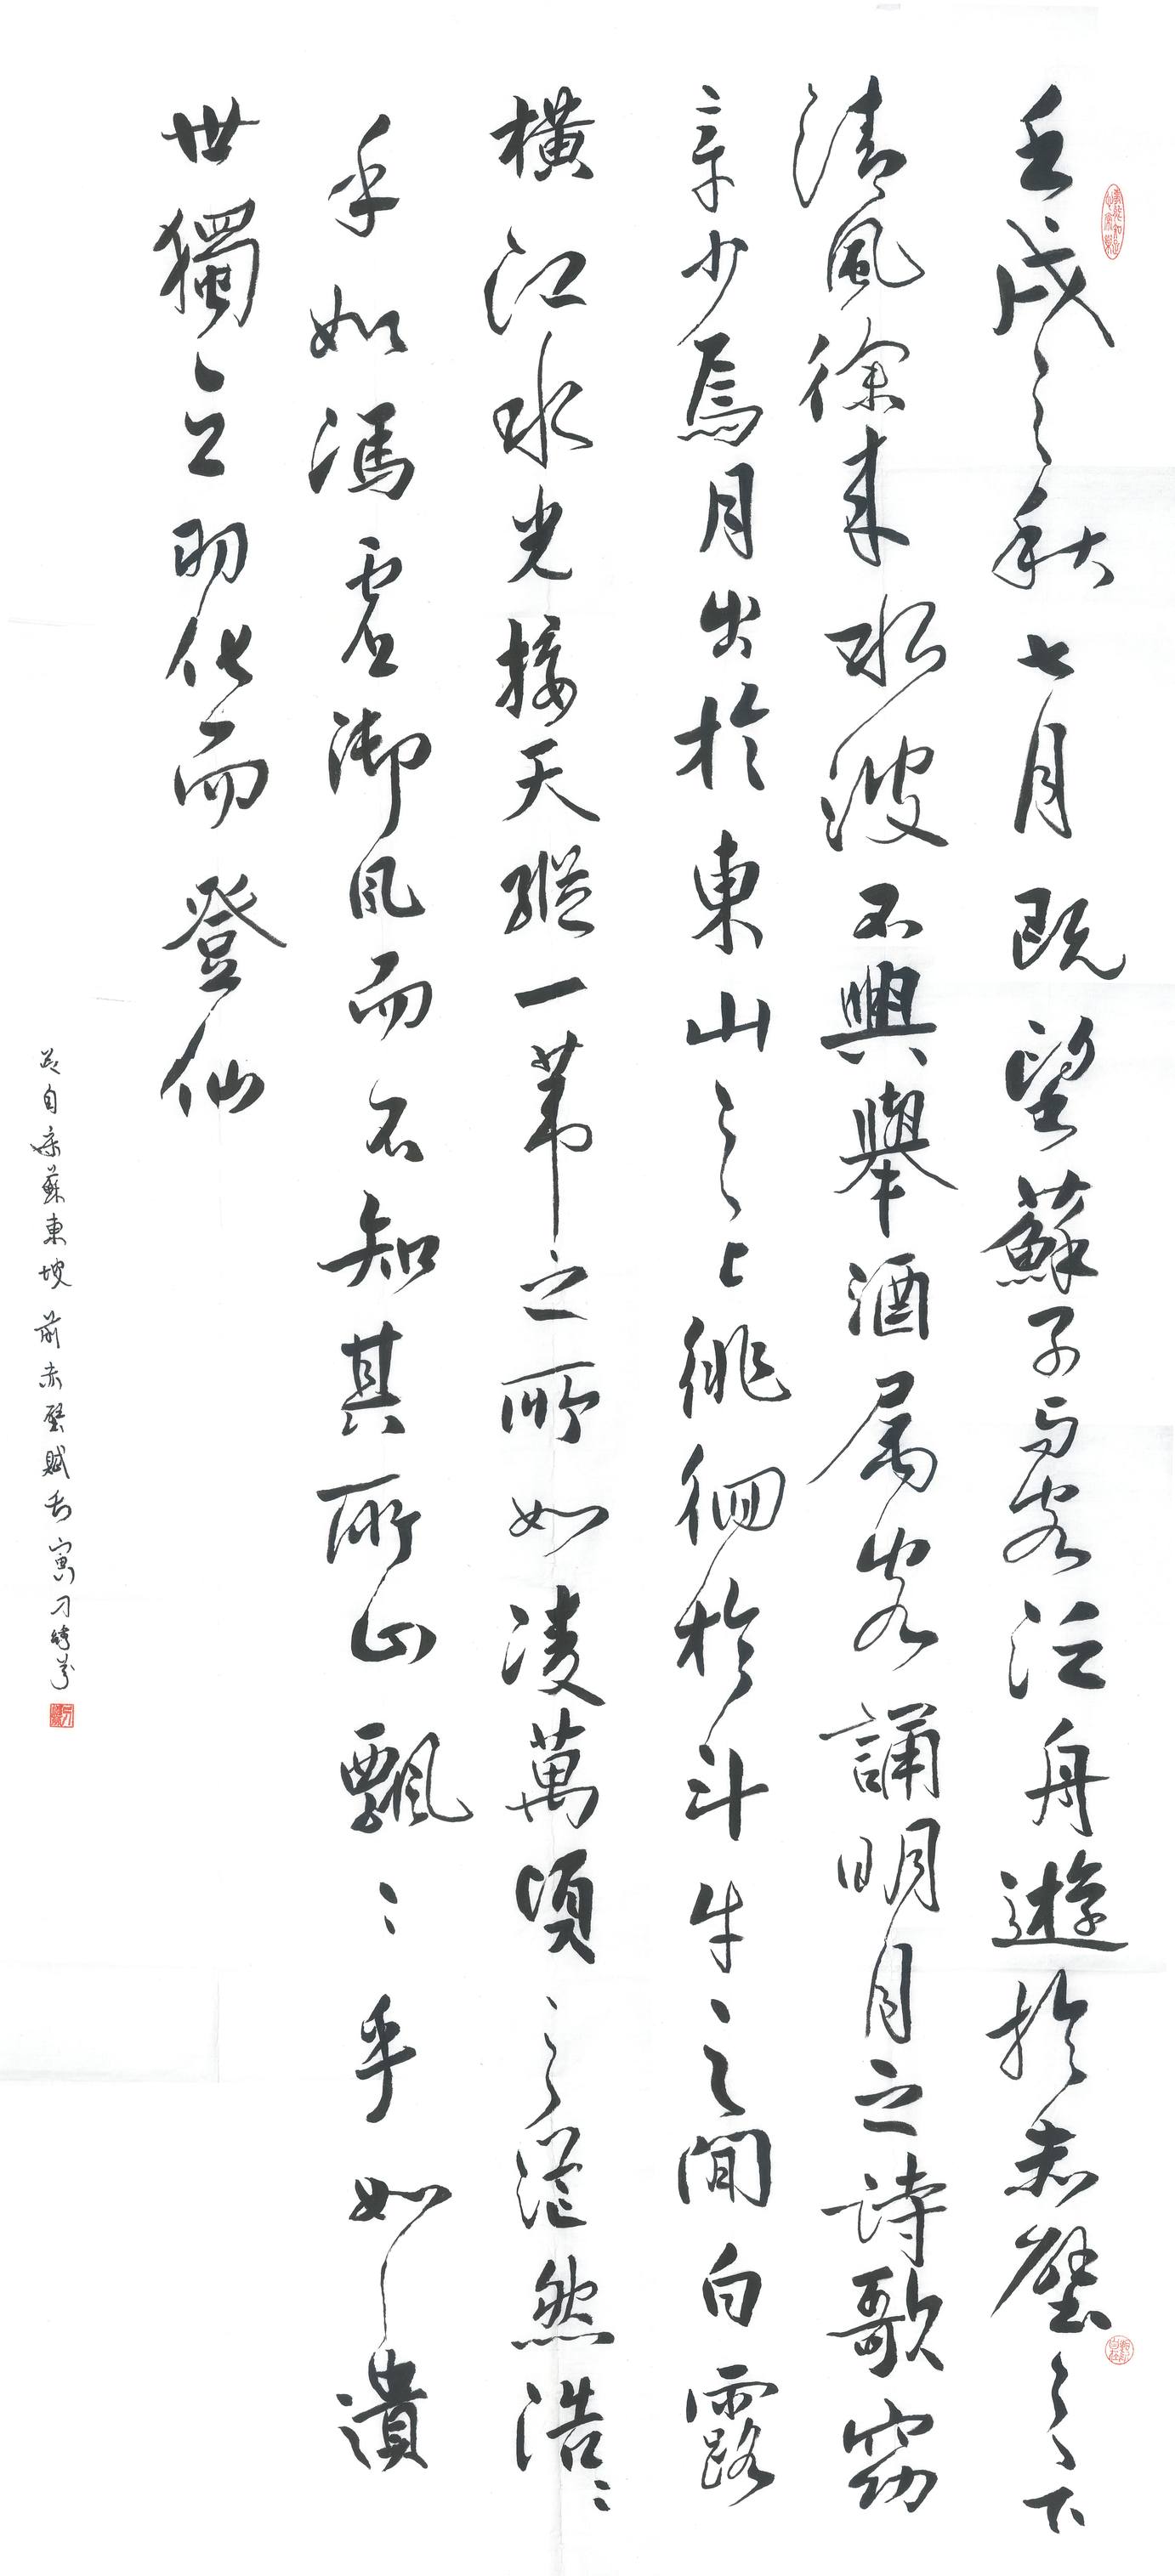 壬戌之秋七月既望蘇子与客泛舟遊於赤壁之下
清風徐來水波不興舉酒属客誦明月之詩歌窈
〻章少焉月出於東山之上徘徊於斗牛之間白露
橫江水光接天縱一葦之所如凌萬頃之茫然浩〻
乎如馮虛御風而不知其所止飄〻乎如遺
世獨立羽化而登仙
自宋蘇東坡前赤壁賦